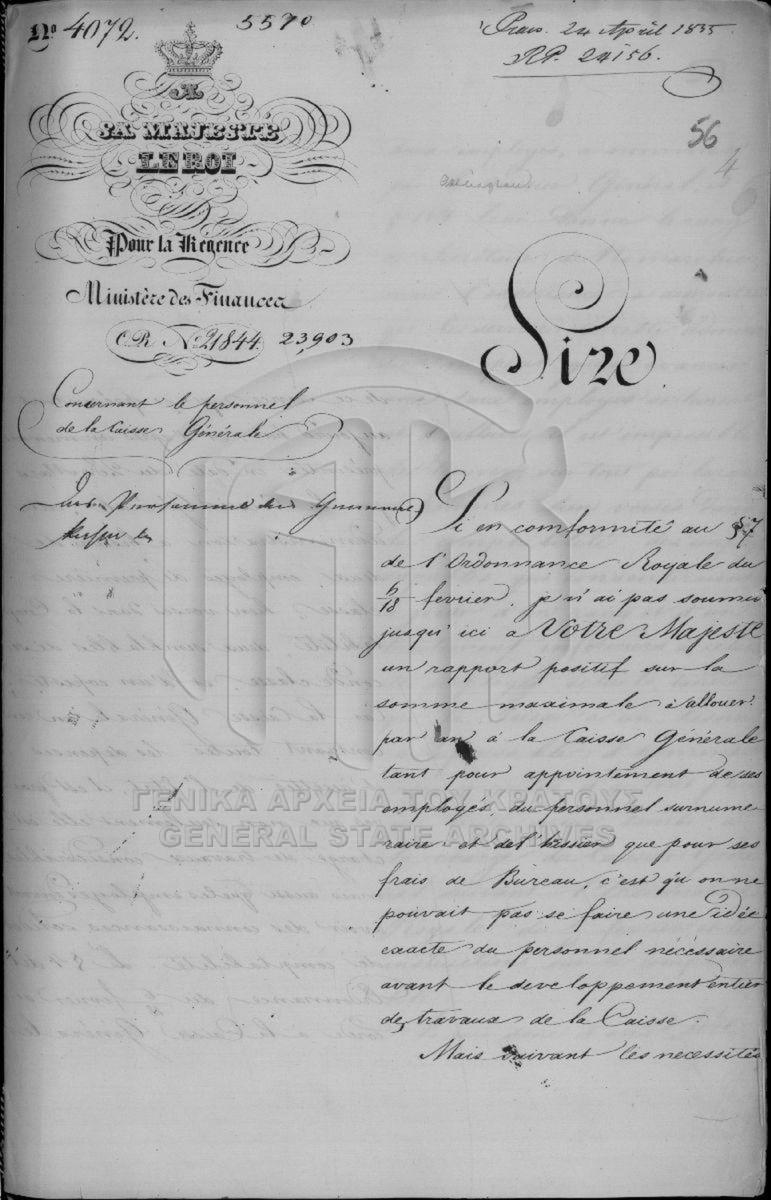 No 4072.
5570
Praes. 24 April 1835
RP. 24156.
56
4
A
SA MAJESTÉ
LE ROI
Pour la Régence
Ministère des Finances
C.R. No 21844. 23903
Concernant le personnel
de la Caisse Générale
Sire
Si en conformité au § 7
de l'Ordonnance Royale du
6/18 fevrier, je n'ai pas soumis
jusqu'ici a Votre Majesté
un rapport positif sur la
somme maximale à allouer
par an à la Caisse Générale
tant pour appointement de ses
employés, du personnel surnume-
raire et de l'huissier que pour ses
frais de Bureau, c'est qu'on ne
pouvait pas se faire une idée
exacte du personnel nécessaire
avant le developpement entier
des travaux de la Caisse.
Mais suivant les necessités
ΓΕΝΙΚΑ ΑΡΧΕΙΑ ΤΟΥ ΚΡΑΤΟΥΣ
GENERAL STATE ARCHIVES